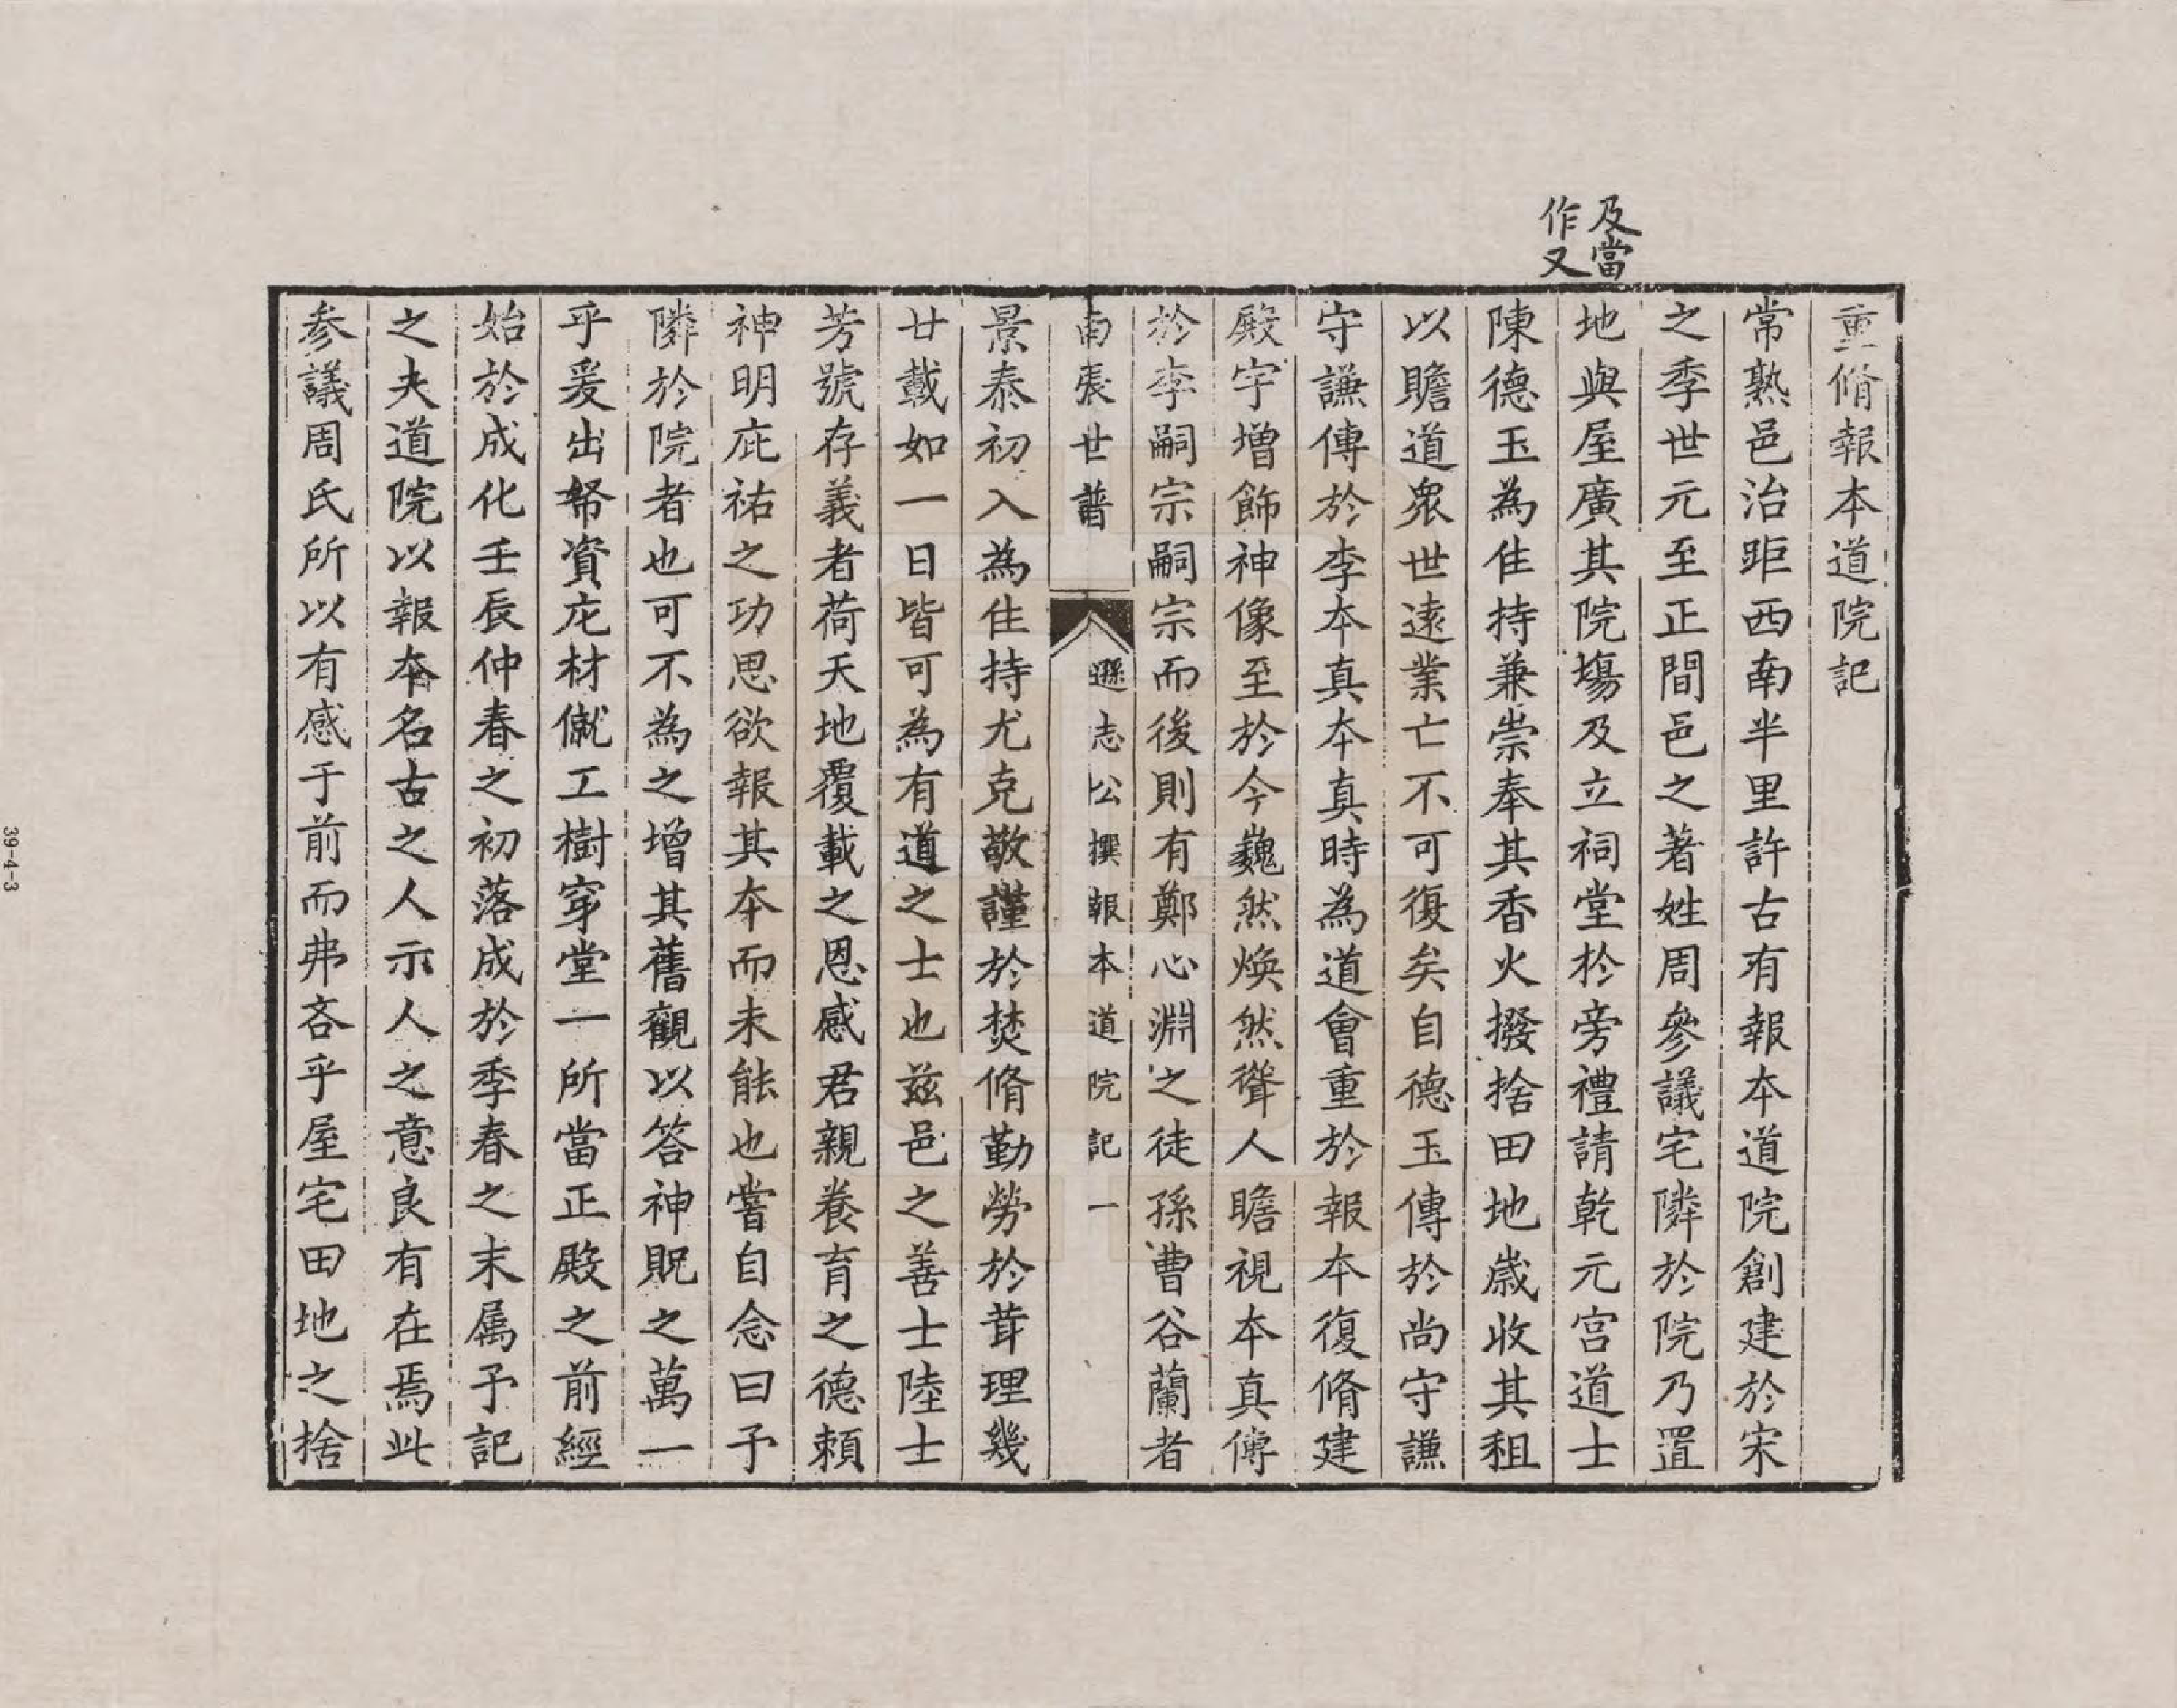 及當
作又
重脩報本道院記
常熟邑治距西南半里許古有報本道院創建於宋
之季世元至正間邑之著姓周參議宅隣於院乃置
地與屋廣其院塲及立祠堂於旁禮請乾元宫道士
陳德玉為住持兼崇奉其香火撥捨田地歲收其租
以贍道衆世逺業亡不可復矣自德玉傳於尚守謙
守謙傳於李本真本真時為道會重於報本復脩建
殿宇增飾神像至於今巍然煥然聳人瞻視本真傳
於李嗣宗嗣宗而後則有鄭心淵之徒孫曹谷蘭者
南張世譜
遜志公撰報本道院記一
景泰初入為住持尤克敬謹於焚脩勤勞於葺理幾
廿載如一日皆可為有道之士也兹邑之善士陸士
芳號存義者荷天地覆載之恩感君親養育之德頼
神明庇祐之功思欲報其本而未能也嘗自念曰予
隣於院者也可不為之增其舊觀以答神貺之萬一
乎爰出帑資庀材僦工樹穿堂一所當正殿之前經
始於成化壬辰仲春之初落成於季春之末属予記
之夫道院以報本名古之人示人之意良有在焉此
参議周氏所以有感于前而弗吝乎屋宅田地之捨
39-4-3